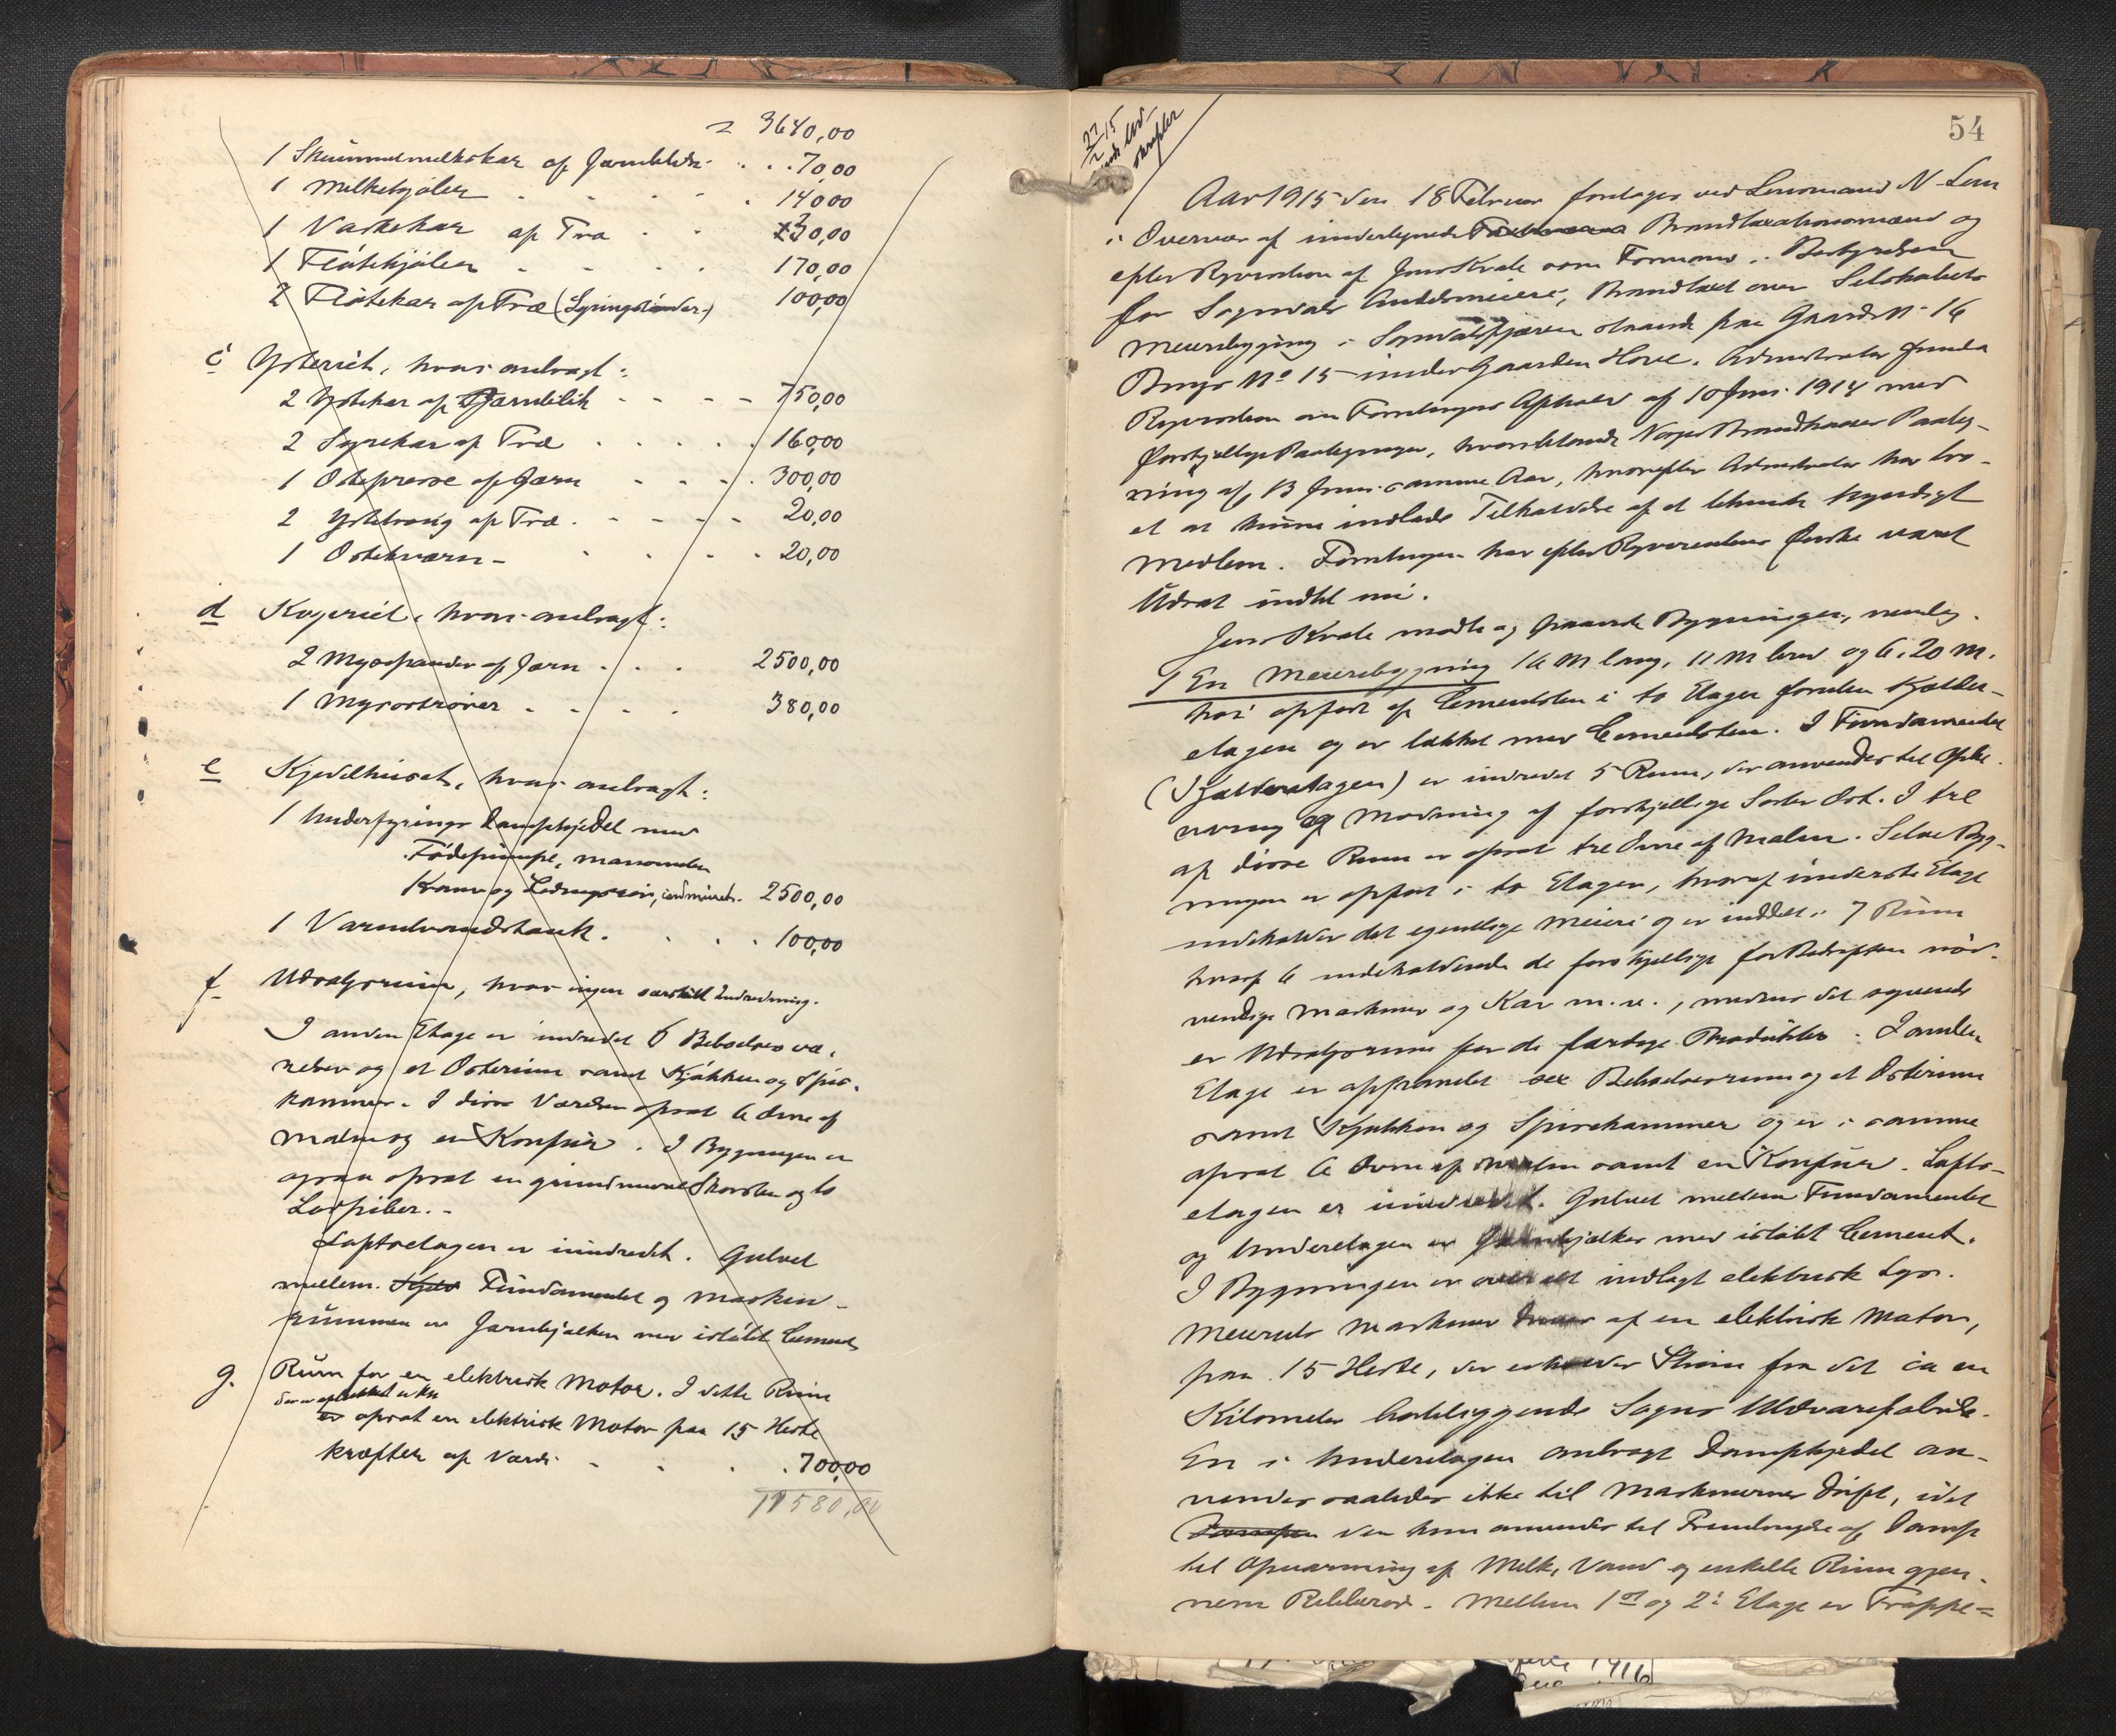 = 3640,00
1 Skummetmelkskar af Jernblik . . . 70,00
1 Melkekjøler . . . . 140,00
1 Vaskekar af Træ . . 30,00
1 Fløtekjøler . . . . 170,00
2 Fløtekar af Træ (Syringstønder) 100,00
c Ysteriet, hvor anbragt:
2 Ystekar af Jernblik - - - - 750,00
2 Syrekar af Træ . . . . . 160,00
1 Ostepresse af Jærn - - - . 300,00
2 af Træ . - - - - 20,00
1 Ostekværn - . . . . 20,00
d Kogeriet, hvor anbragt:
2 Mysepander af Jærn . . . 2500,00
1 Mysostrører - - . . 380,00
e Kjedelhuset, hvor anbragt:
1 Underfyrings Dampkjedel med
Fødepumpe, manometer
Kraner og Ledningsrør, indmuret. 2500,00
1 Varmtvandstank . . . . 100,00
f Udsalgsrum, hvor ingen særskilt Indredning.
I anden Etage er indredet 6 Beboelsesvæ-
relser og et Osterum samt Kjøkken og Spis-
kammer. I disse Værelser opsat 6 Ovne af
Malm og en Komfur. I Bygningen er
ogsaa opsat en grundmuret Skorsten og to
Luftpiber. -
Loftsetagen er uindredet. Gulvet
mellem Fundamentet og Maskin-
rummen er Jernbjælker med istøbt Cement
g. Rum for en elektrisk Motor. I dette Rum
er opsat en elektrisk Motor paa 15 Heste
kræfter af Værdi - . . . 700,00
11580,00
27/2 15
54
Aar 1915 den 18 Februar foretoges ved Lensmand N. Lem
i Overvær af undertegnede Brandtaxationsmænd og
efter Reqvisition af Jens Kvale som Formand i Bestyrelsen
for Sogndals Andelsmeieri, Brandtaxt over Selskabets
Meieribygning i Sogndalsfjæren staaende paa Gaards No 16
Brugs No 15 under Gaarden Hove. Administrator fremla
Reqvisition om Forretningens Afholdelse af 10 Juni 1914 med
forskjellige Paategninger, hvoriblandt Norges Brandkasses Paateg-
ning af 13 Juni samme Aar, hvorefter Administrator har tro-
et at kunne undlade Tilkaldelse af et teknisk kyndigt
Medlem. Forretningen har efter Reqvirentens Ønske været
Udsat indtil nu.
Jens Kvale mødte og paaviste Bygningen, nemlig.
1 En Meieribygning 16 M lang, 11 M bred og 6,20 M.
høi opført af Cementsten i to Etager foruden Kjælder-
etagen og er tækket med Cementsten. I Fundamentet
(Kjælderetagen) er indredet 5 Rum, der anvendes til Opbe-
varing og Modning af forskjellige Sorter Ost. I tre
af disse Rum er opsat tre Ovne af Malm. Selve Byg-
ningen er opført i to Etager, hvoraf underste Etage
indeholder det egentlige Meieri og er inddelt i 7 Rum
hvoraf 6 indeholdende de forskjellige for Bedriften nød-
vendige Maskiner og Kar m. v., medens det syvende
er Udsalgsrum for de færdige Produkter. I anden
Etage er oppandet sex Beboelsesrum og et Osterum
samt Kjøkken og Spisekammer og er i samme
opsat 6 Ovne af Malm samt en Komfur. Lofts-
etagen er uindredet. Gulvet mellem Fundamentet
og Underetagen er Jernbjælker med istøbt Cement.
I Bygningen er overalt indlagt elektrisk Lys.
Meieriets Maskiner drives af en elektrisk Motor,
paa 15 Heste, der erholder Strøm fra det ca en
Kilometer bortliggende Sogns Uldvarefabrik.
En i Underetagen anbragt Dampkjedel an-
vendes saaledes ikke til Maskinernes Drift, idet
Dampen den kun anvendes til Frembringelse af Damp
til Opvarming af Melk, Vand og enkelte Rum gjen-
nem Ribberør. Mellem 1ste og 2. Etage er Trappe=
1916